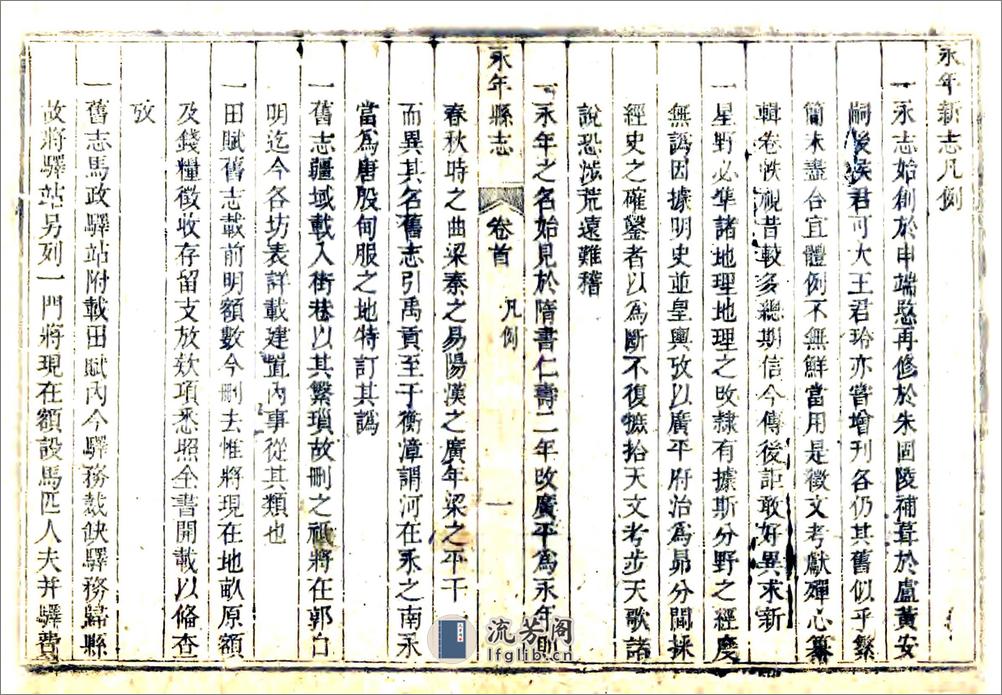 永年新志凡例
一永志始創於申端愍再修於朱固陵補葺於盧黃安
嗣後侯君可大王君玲亦嘗增刊各仍其舊似乎繁
簡未盡合宜體例不無鮮當用是徵文考獻殫心纂
輯卷帙視昔較多總期信今傳後詎敢好異求新
一星野必準諸地理地理之改隸有據斯分野之經度
無譌因據明史並皇輿攷以廣平府治為昴分間採
經史之確鑿者以為斷不復摭拾天文考步天歌諸
說恐涉荒遠難稽
一永年之名始見於隋書仁壽二年改廣平為永年則
春秋時之曲梁秦之易陽漢之廣年梁之平干
而異其名舊志引禹貢至于衡漳謂河在永之南永
當為唐殷甸服之地特訂其譌
一舊志疆域載入街巷以其繁瑣故刪之祗將在郭自
明迄今各坊表詳載建置內事從其類也
一田賦舊志載前明額數今刪去惟將現在地畝原額
及錢糧徵收存留支放欵項悉照全書開載以備查
攷
一舊志馬政驛站附載田賦內今驛務裁缺驛務歸縣
故將驛站另列一門將現在額設馬匹人夫并驛費
永年縣志
卷首
凡例
一
流芳阁
lfglib.cn